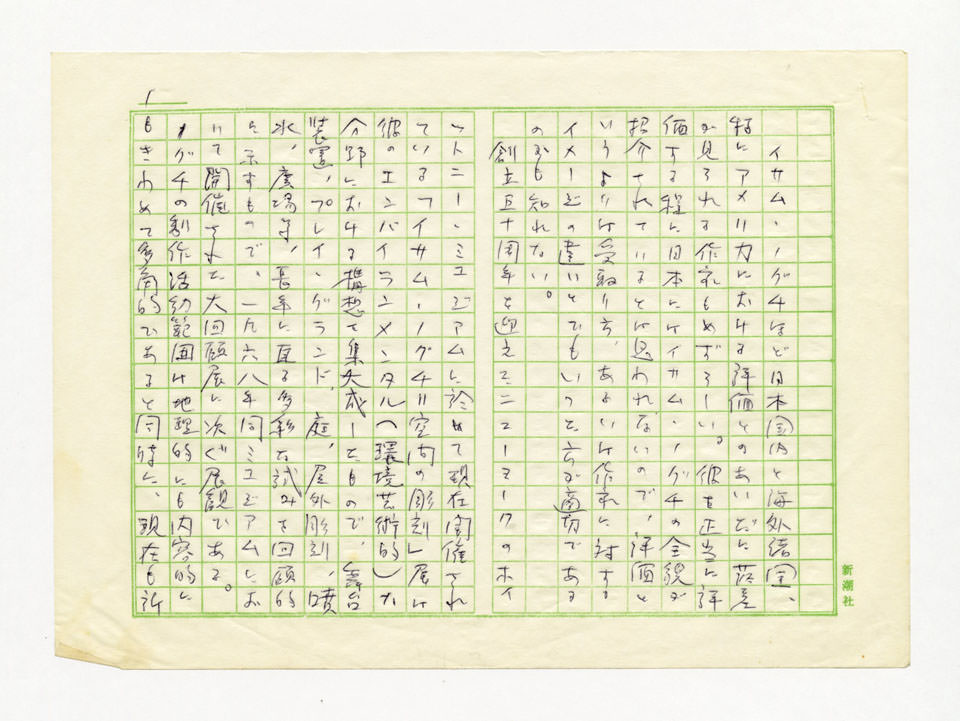 イサム・ノグチほど日本国内と海外諸国、
特にアメリカにおける評価とのあいだに落差
が見られる作家もめずらしい。彼を正当に評
価する程に日本にはイサム・ノグチの全貌が
紹介されているとは思われないので、評価と
いうよりは受取り方、あるいは作家に対する
イメージの違いとでもいった方が適切である
のかも知れない。
創立五十周年を迎えたニューヨークのホイ
ットニー・ミュゼアムに於めて現在開催され
ている「イサム・ノグチ=空間の彫刻」展は
彼のエンバイランメンタル(環境芸術的)な
分野における構想を集大成したもので、舞台
装置、プレイ・グランド、庭、屋外彫刻、噴
水、広場等、長年に亘る多彩な試みを回顧的
に示すもので、一九六八年同ミュゼアムにお
いて開催された大回顧展に次ぐ展観である。
ノグチの制作活動範囲は地理的にも内容的に
もきわめて多角的であると同時に、現在も訴
1
新潮社